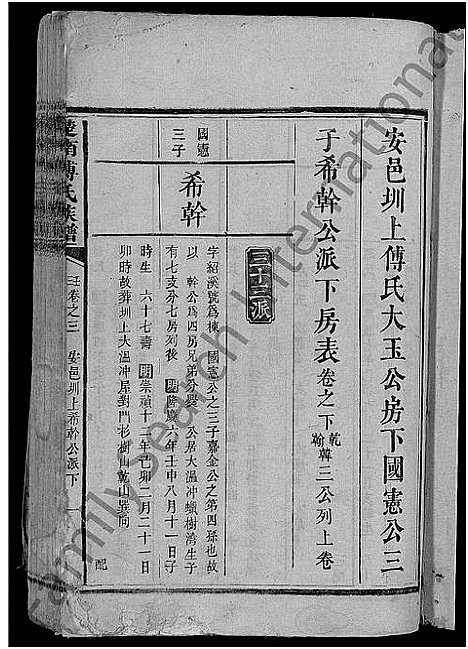 安邑圳上傅氏大玉公房下國憲公三
子希幹公派下房表 卷之下 乾韓翰三公列上卷
三十三派
國憲
三子
希幹
字紹溪號為棟 國憲公之三子嘉金公之第四孫也故
以 幹公為四房兄弟分爨 公居大溫冲 樹灣生子
有七支分七房列後 明隆慶六年壬申八月十一日子
時生 六十七壽 明崇禎十二年己卯二月二十一日
卯時故葬圳上大溫冲屋對門杉樹山乾山巽向
配
楚南傅氏族譜
卷之三 安邑圳上希幹公派下 一
FamilySearch International